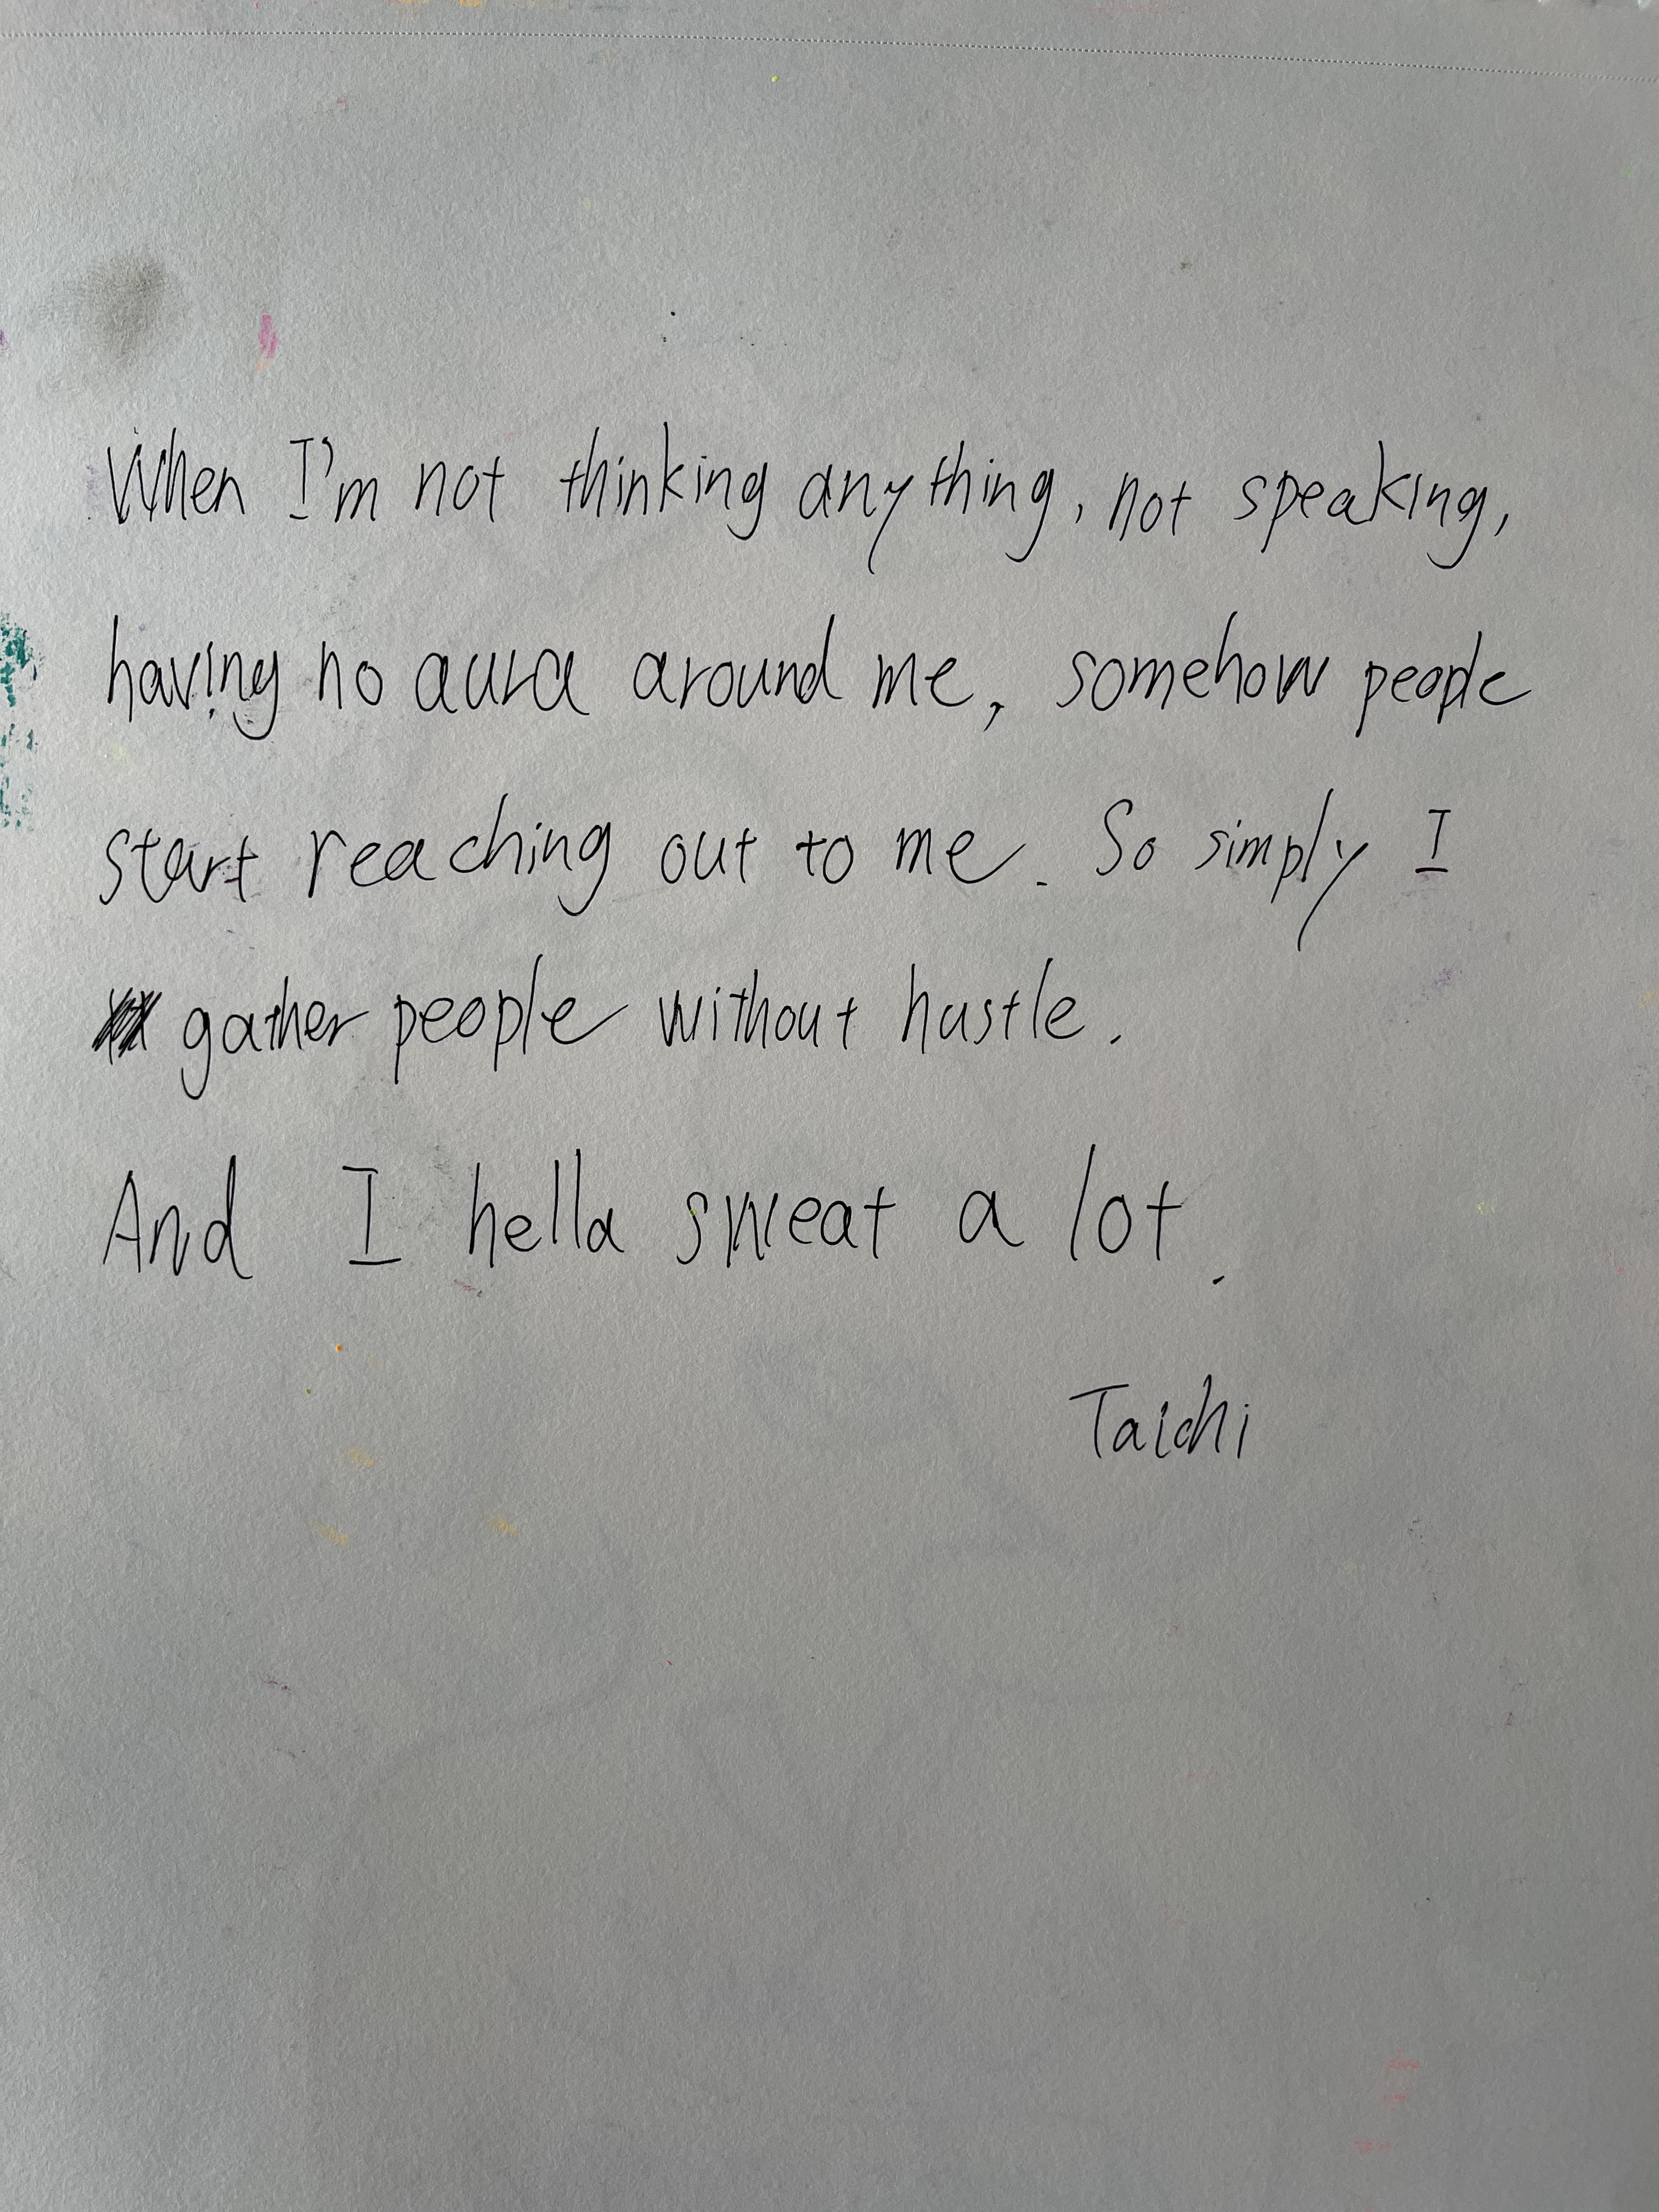 When I'm not thinking anything, not speaking,
having no aura around me, somehow people
start reaching out to me. So simply I
gather people without hustle.
And I hella sweat a lot.
Taichi